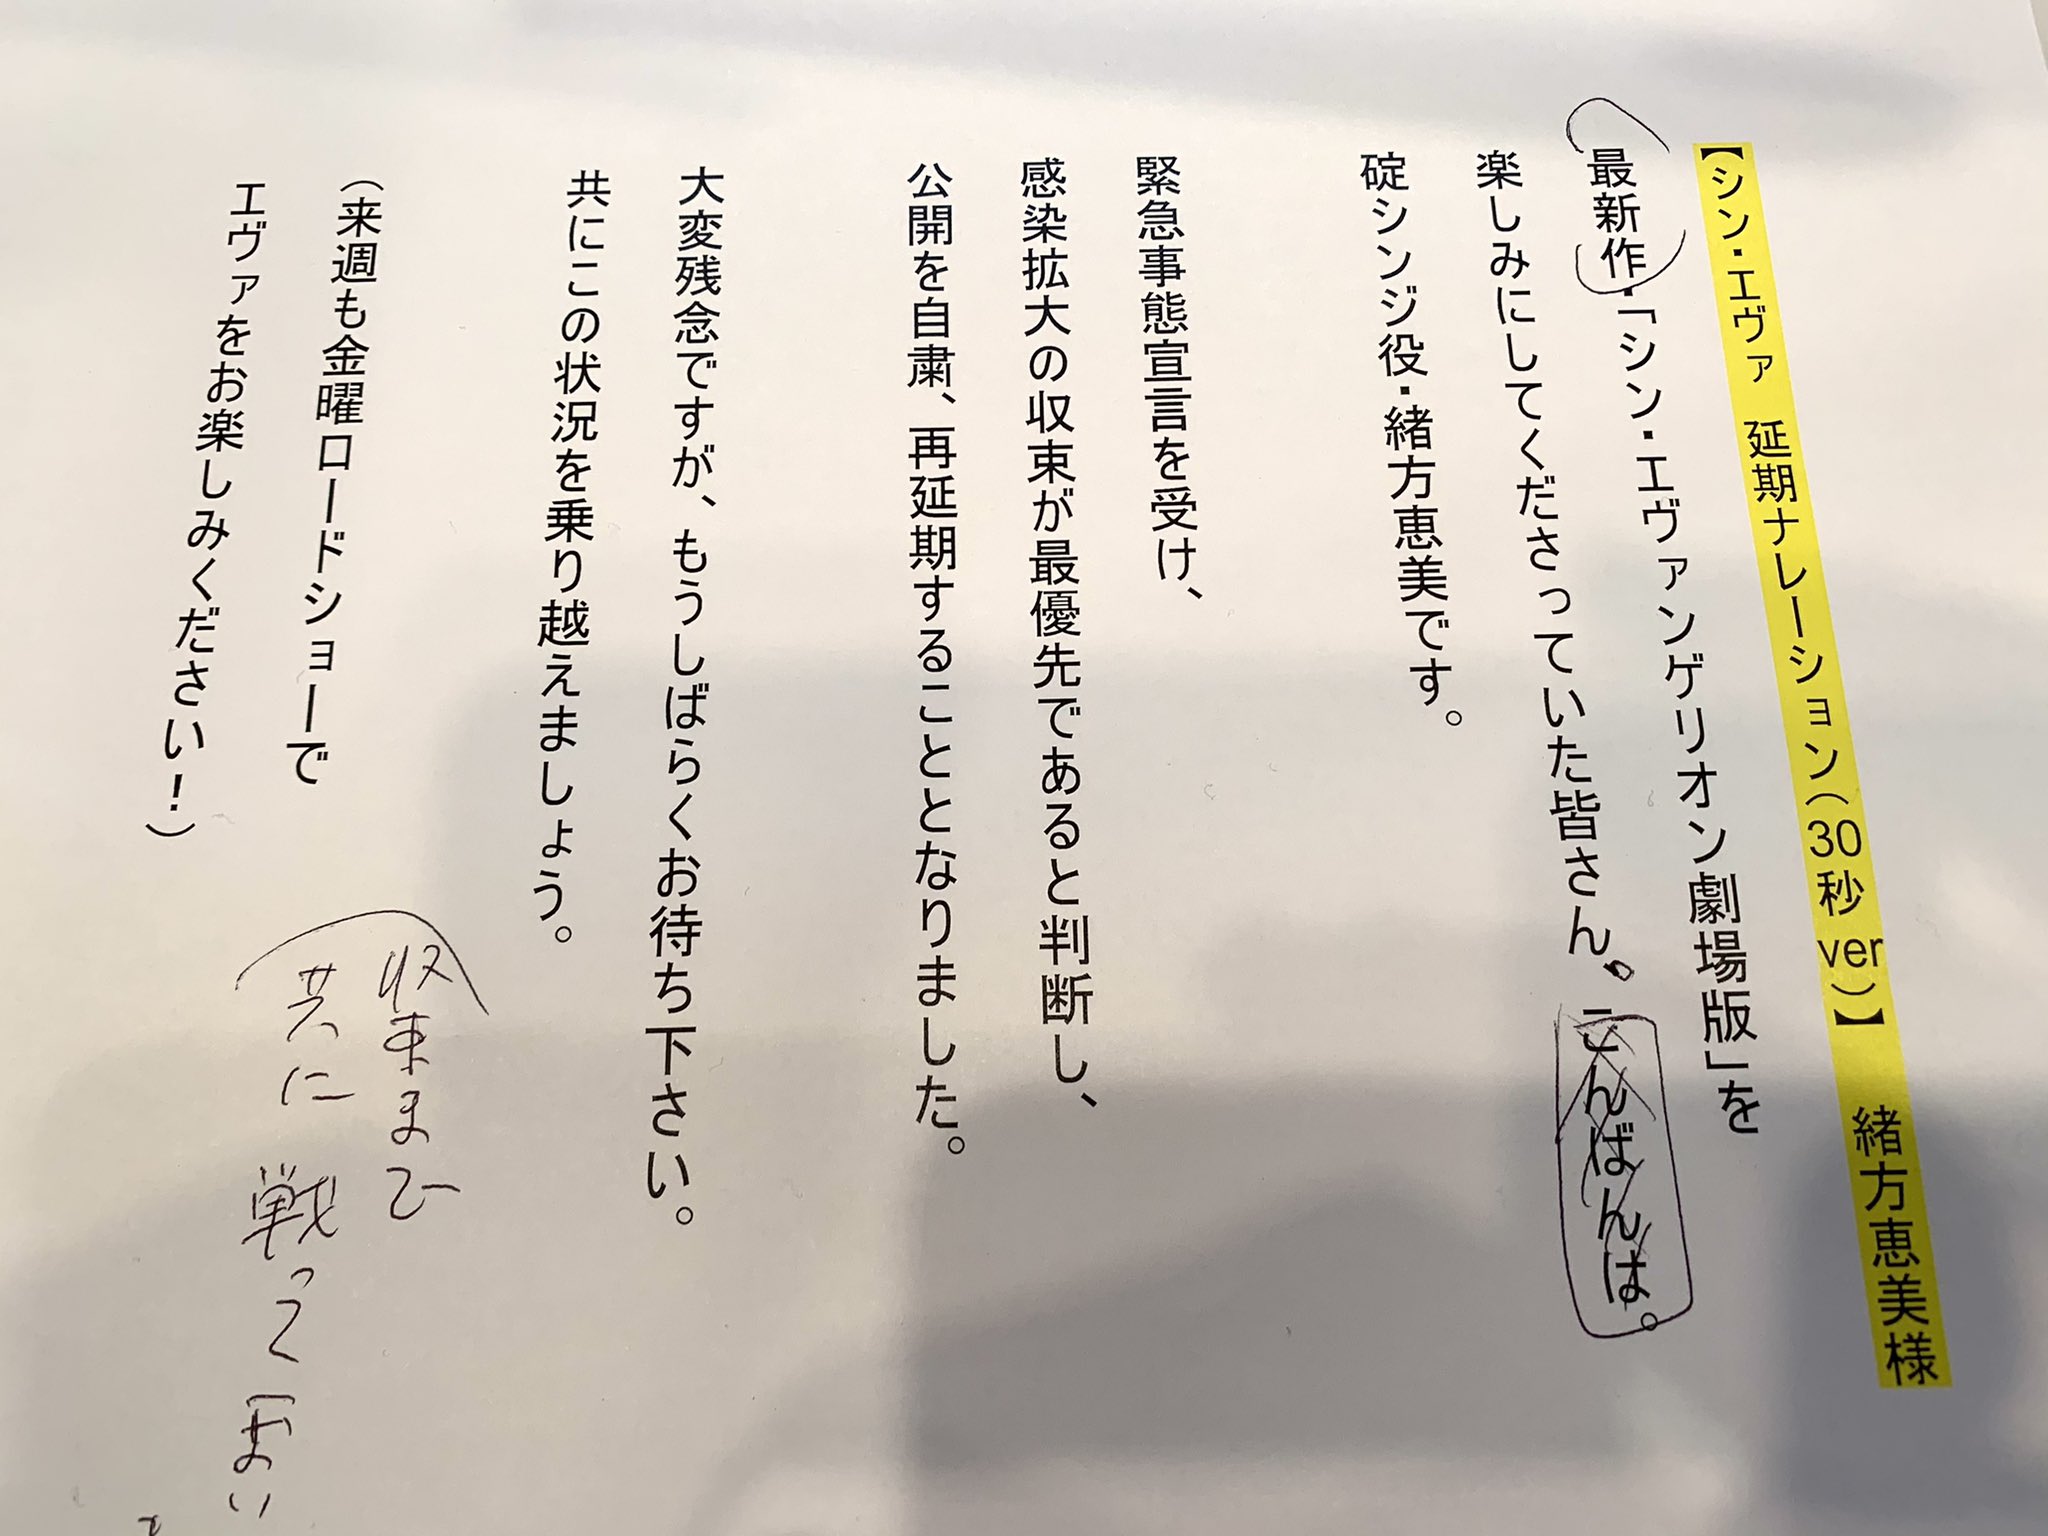 【シン・エヴァ 延期ナレーション（30秒ver）】 緒方恵美様
最新作・「シン・エヴァンゲリオン劇場版」を
楽しみにしてくださっていた皆さん。こんばんは。
碇シンジ役・緒方恵美です。
緊急事態宣言を受け、
感染拡大の収束が最優先であると判断し、
公開を自粛、再延期することとなりました。
大変残念ですが、もうしばらくお待ち下さい。
共にこの状況を乗り越えましょう。
（来週も金曜ロードショーで
エヴァをお楽しみください！）
収束まで
共に戦って